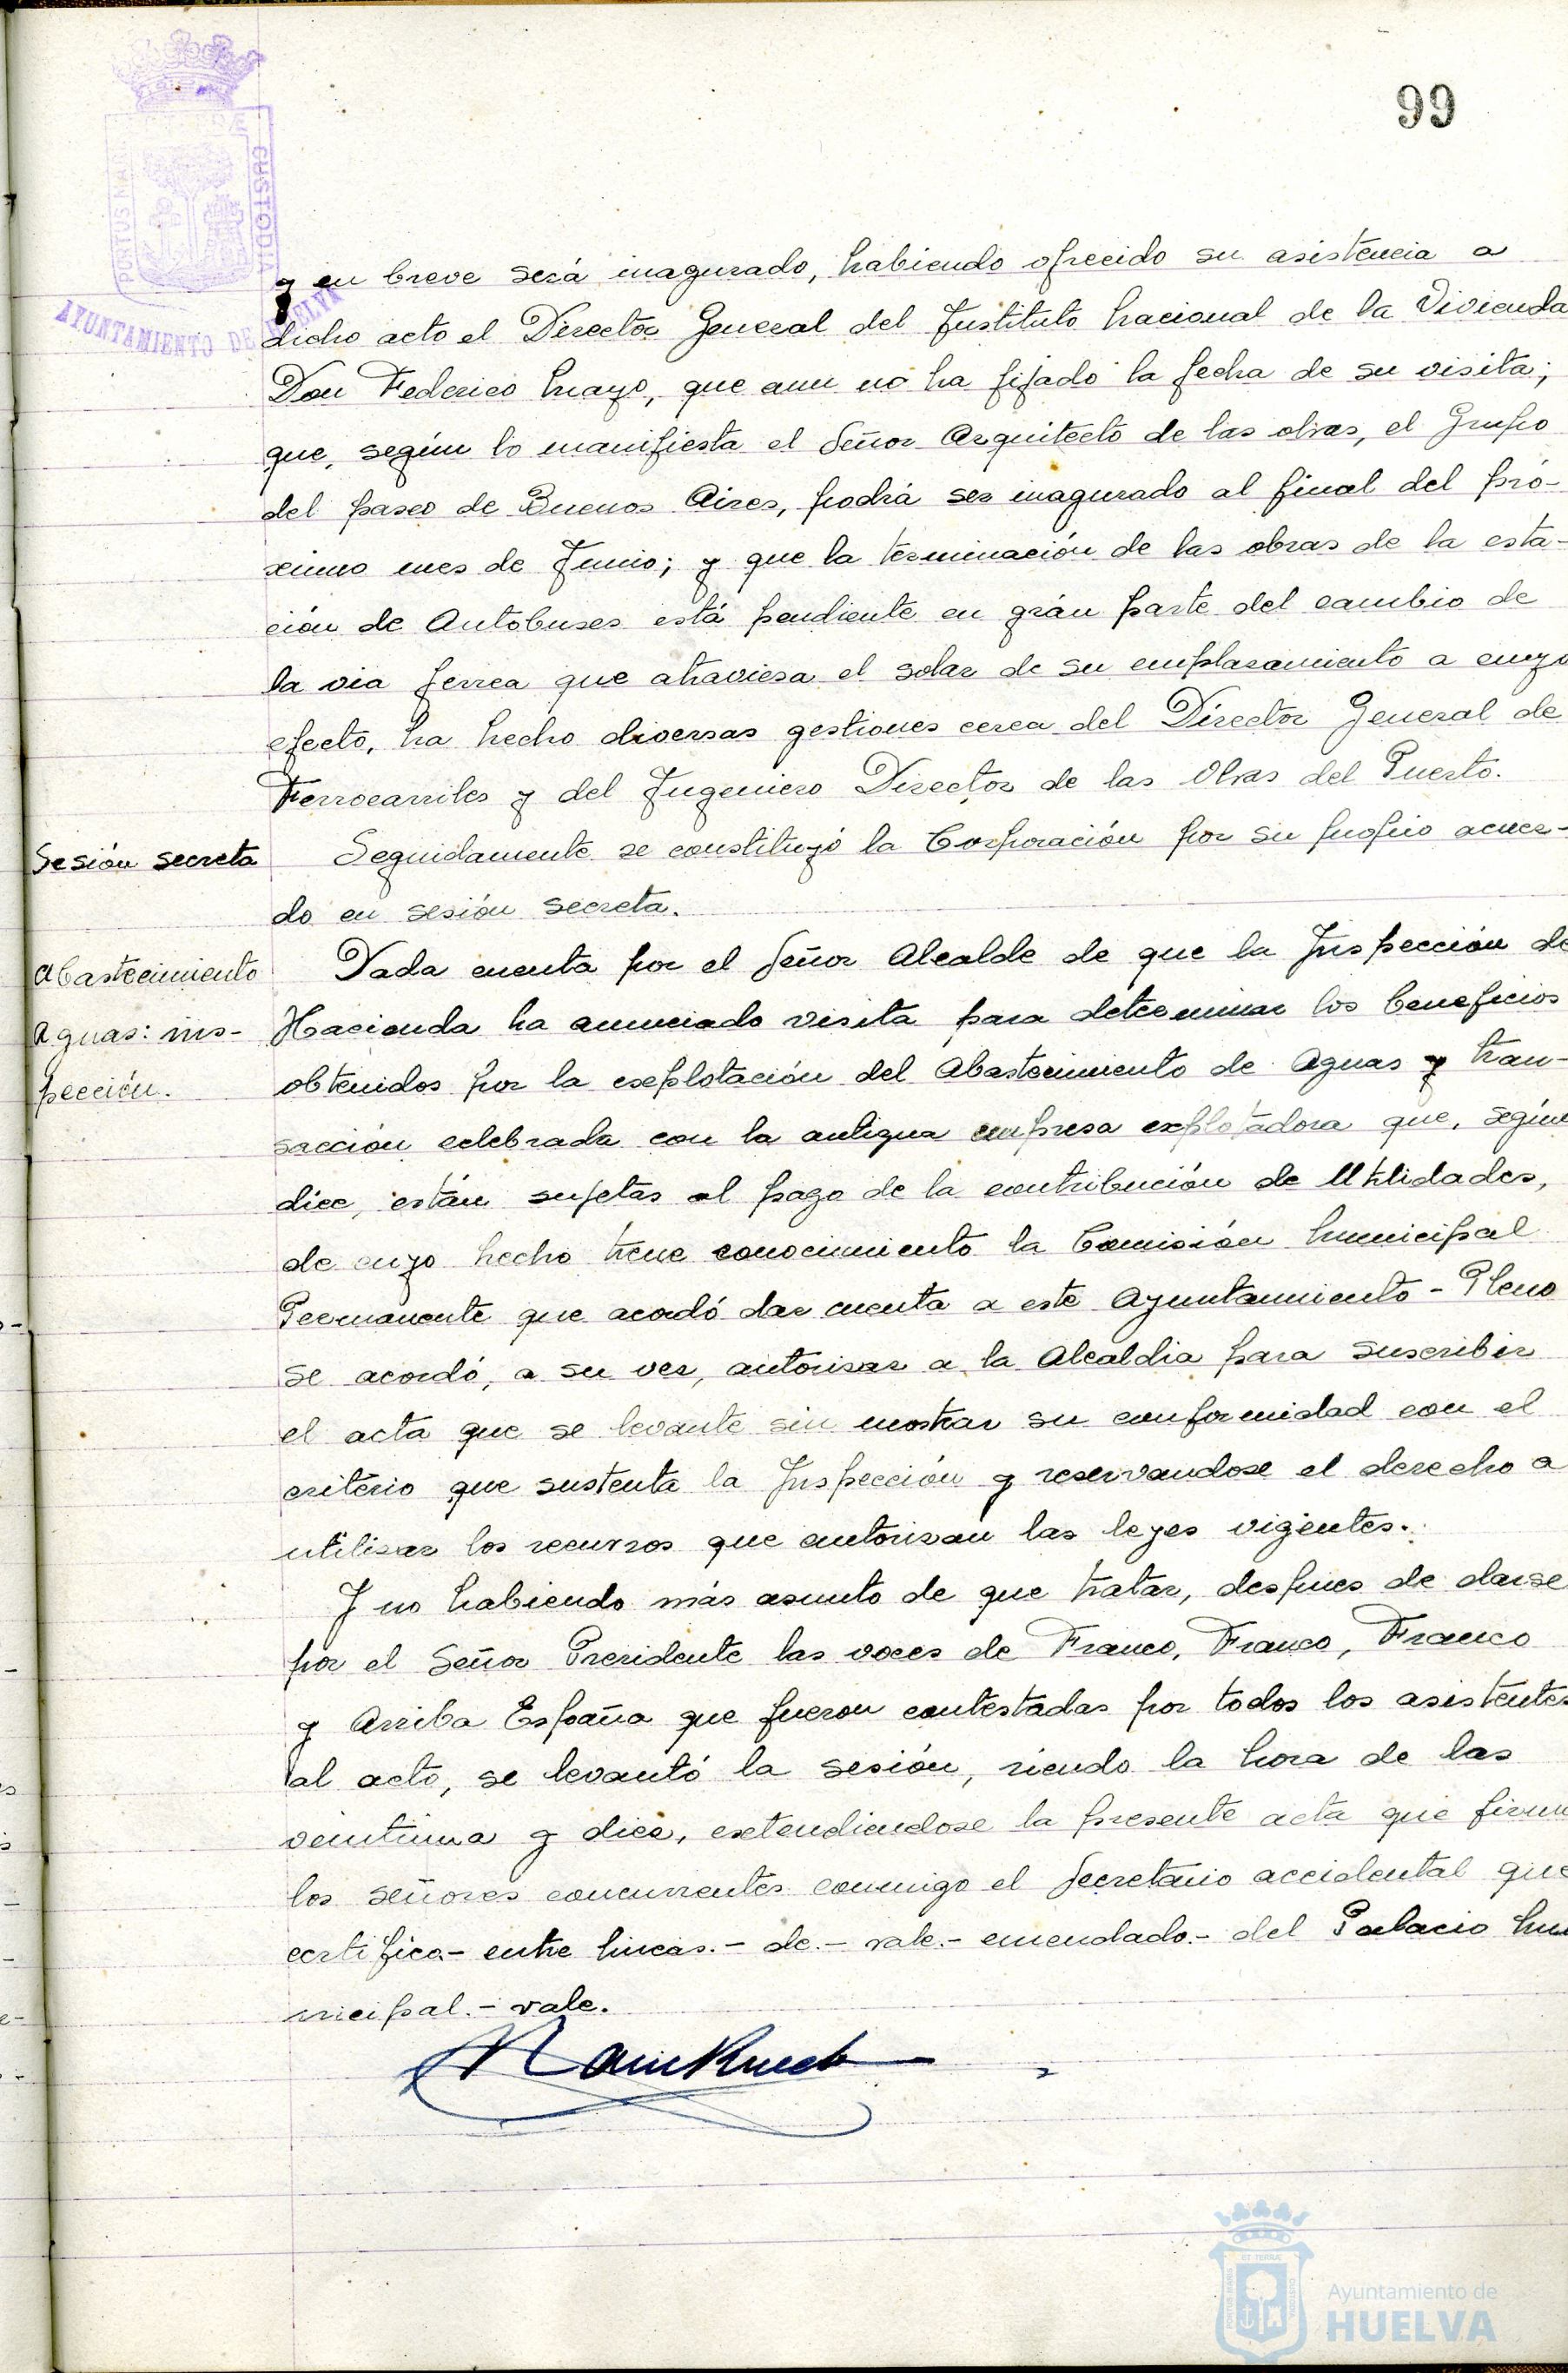 99
PORTUS MARIS
CUSTODIA
AYUNTAMIENTO DE HUELVA
y en breve será inagurado, habiendo ofrecido su asistencia a
dicho acto el Director General del Instituto Nacional de la Vivienda
Don Federico Mayo, que aun no ha fijado la fecha de su visita;
que, según lo manifiesta el Señor Arquitecto de las obras, el Grupo
del paseo de Buenos Aires, podrá ser inagurado al final del pró-
ximo mes de Junio; y que la terminación de las obras de la esta-
ción de Autobuses está pendiente en grán parte del cambio de
la via ferrea que atraviesa el solar de su emplasamiento a cuyo
efecto, ha hecho diversas gestiones cerca del Director General de
Ferrocarriles y del Ingeniero Director de las Obras del Puerto.
Sesión secreta
Seguidamente se constituyó la Corporación por su propio acuer-
do en sesión secreta.
Abastecimiento
Aguas: ins-
pección.
Dada cuenta por el Señor Alcalde de que la Inspección de
Hacienda ha anunciado visita para determinar los beneficios
obtenidos por la explotación del Abastecimiento de Aguas y tran-
sacción celebrada con la antigua empresa explotadora que, según
dice, están sujetas al pago de la contribución de Utilidades,
de cuyo hecho tiene conocimiento la Comisión Municipal
Permanente que acordó dar cuenta a este Ayuntamiento - Pleno
se acordó, a su vez, autorisar a la Alcaldia para suscribir
el acta que se levante sin mostrar su conformidad con el
criterio que sustenta la Inspección y reservandose el derecho a
utilisar los recursos que autorisan las leyes vigentes.
Y no habiendo más asunto de que tratar, despues de darse
por el Señor Presidente las voces de Franco, Franco, Franco
y Arriba España que fueron contestadas por todos los asistentes
al acto, se levantó la sesión, siendo la hora de las
veintiuna y diez, extendiendose la presente acta que firman
los señores concurrentes conmigo el Secretario accidental que
certifico.- entre lineas.- de.- vale.- enmendado.- del Palacio Mu
nicipal.- vale.
Ayuntamiento de
HUELVA